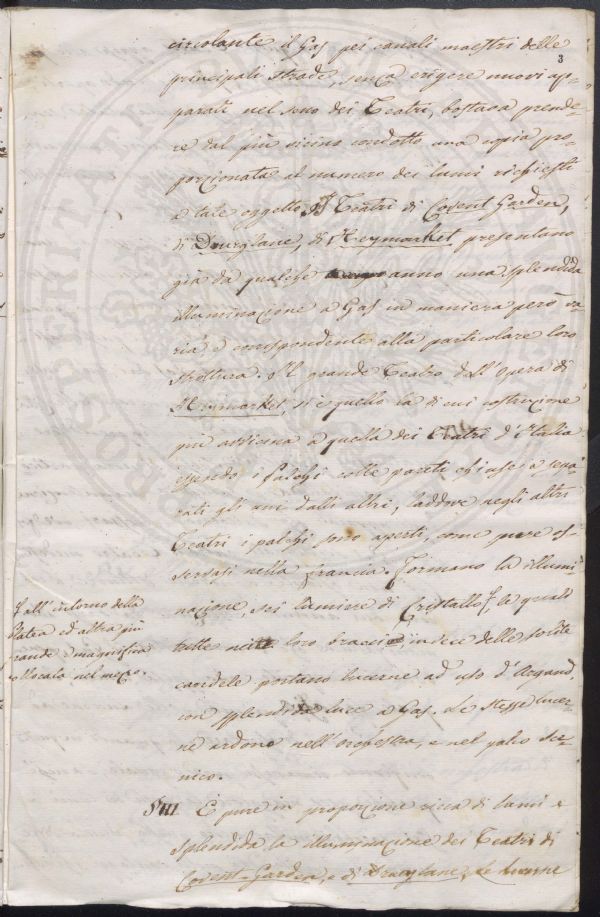 3
circolante il Gas pei canali maestri delle
principali strade, senza erigere nuovi ap-
parati nel seno dei Teatri, bastava prende-
re dal più vicino condotto una copia pro-
porzionata al numero dei lumi richiesti
a tale oggetto. I Teatri di Covent Garden,
di Drurylane, di Heymarket presentano
già da qualche anno una splendida
illuminazione a Gas in maniera però va-
ria, e corrispondente alla particolare loro
struttura. Il grande Teatro dell'Opera di
Heymarket, si è quello la di cui costruzione
più avvicina a quella dei Teatri d'Italia
essendo i palchi colle pareti chiuse e sepa-
rati gli uni dalli altri, laddove negli altri
Teatri i palchi sono aperti, come pure os-
servasi nella Francia. Formano la illumi-
nazione, sei lumiere di Cristallo le quali
tutte nelle loro braccia, in vece delle solite
candele portano lucerne ad uso d'Argand
con splendida luce a Gas. Le stesse lucer-
ne ardono nell'orchestra, e nel palco sce-
nico.
all'intorno della
Platea ed altra più
grande e magnifica
collocata nel mezzo.
§III È pure in proporzione ricca di lumi e
splendida la illuminazione dei Teatri di
Covent-Garden, e di Drurylane. Le lucerne